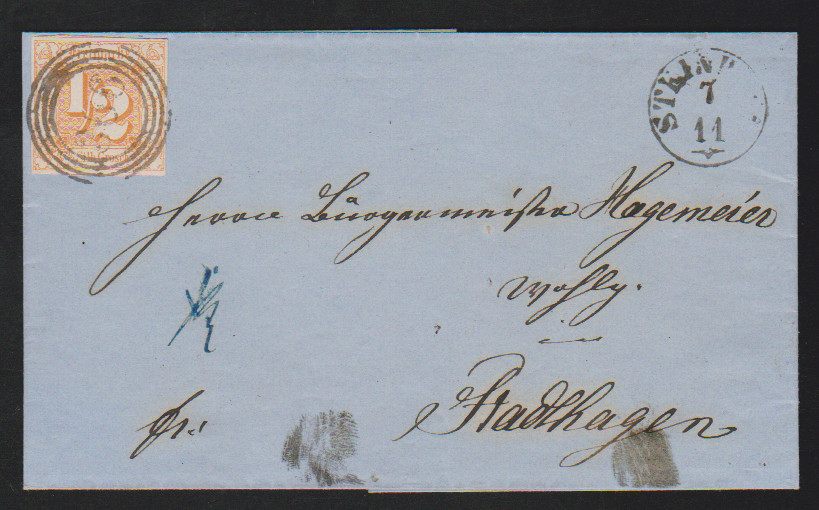 1/2
STEINB
7
11
Herrn Bürgermeister Hagemeier
Wohlg.
in
Stadthagen
1/2
fr: